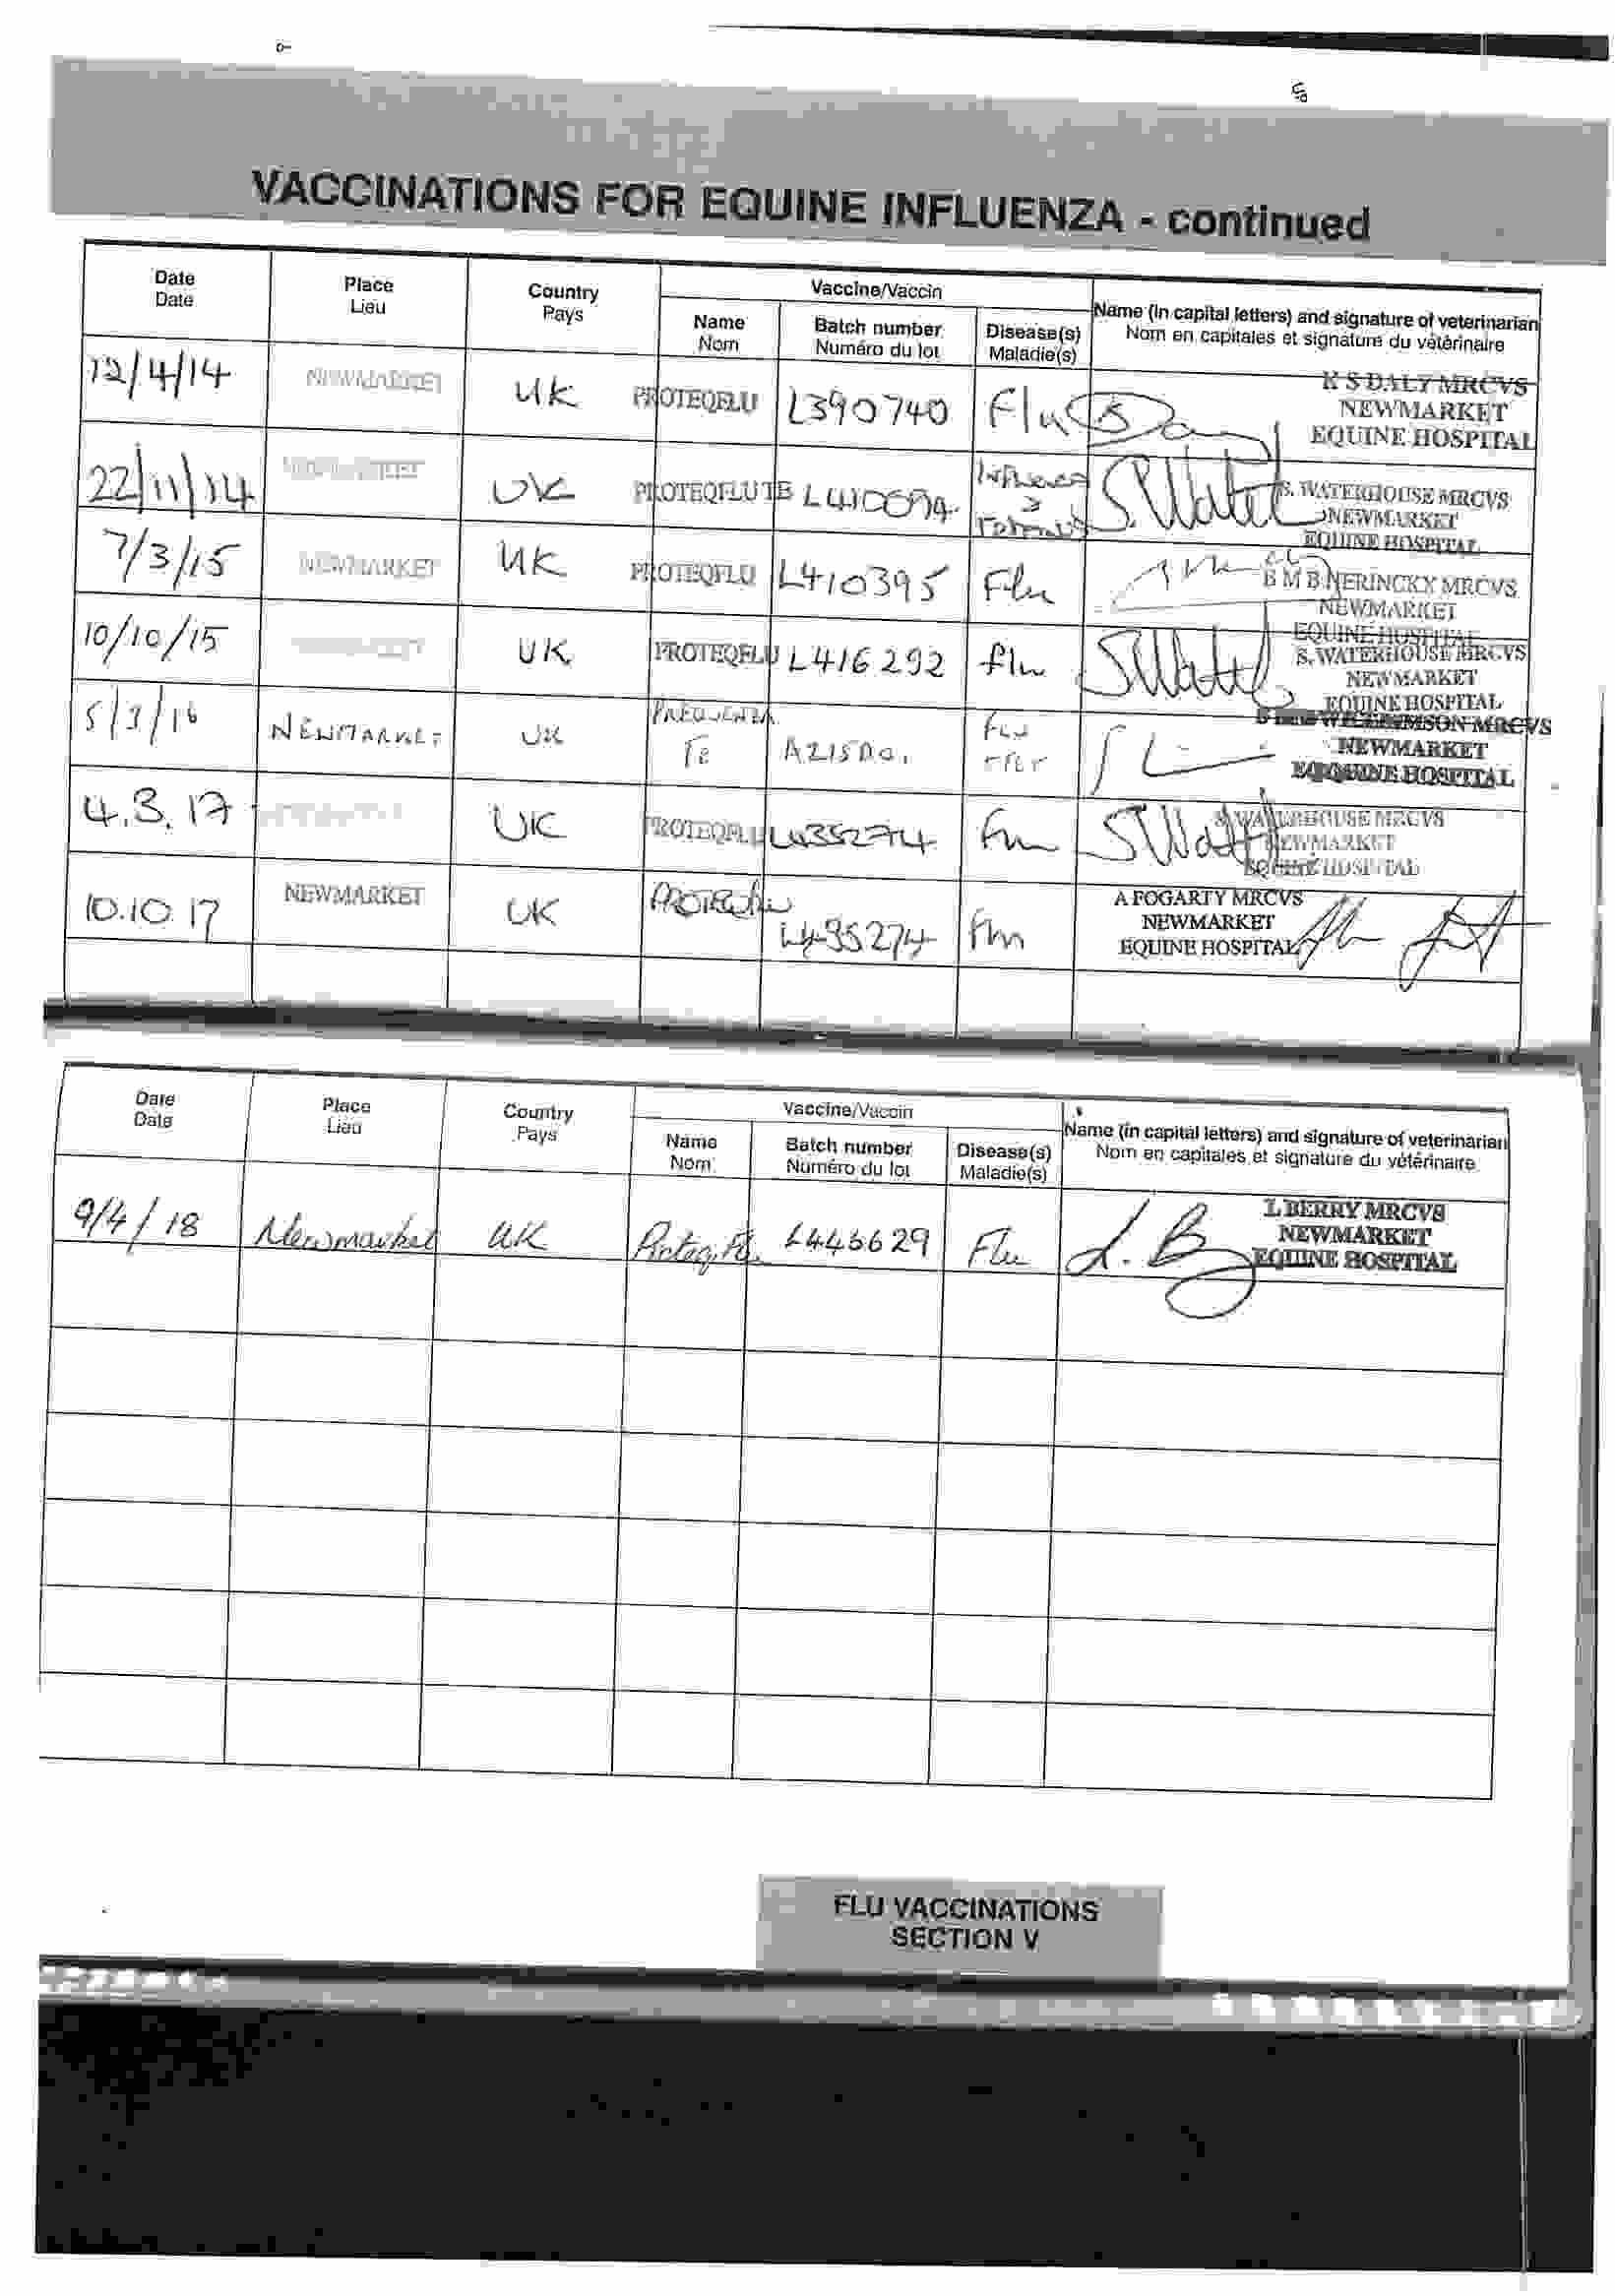 VACCINATIONS FOR EQUINE INFLUENZA - continued
Date Place Country Vaccine/Vaccin Name (in capital letters) and signature of veterinarian
Date Lieu Pays Name Batch number Disease(s) Nom en capitales et signature du vétérinaire
Nom Numéro du lot Maladie(s)
12/4/14 NEWMARKET UK PROTEQFLU L390740 Flu K S DALY MRCVS
NEWMARKET
EQUINE HOSPITAL
22/11/14 UK PROTEQFLU TE Influenza S. WATERHOUSE MRCVS
NEWMARKET
EQUINE HOSPITAL
7/3/15 NEWMARKET UK PROTEQFLU L410395 Flu B M B NERINCKX MRCVS
NEWMARKET
EQUINE HOSPITAL
10/10/15 UK PROTEQFLU L416292 flu S. WATERHOUSE MRCVS
NEWMARKET
EQUINE HOSPITAL
5/3/16 NEWMARKET UK PREQUENZA Flu WILLIAMSON MRCVS
Te NEWMARKET
EQUINE HOSPITAL
4.3.17 UK PROTEQFLU L435274 Flu S. WATERHOUSE MRCVS
NEWMARKET
EQUINE HOSPITAL
10.10.17 NEWMARKET UK PROTEQFLU L435274 Flu A FOGARTY MRCVS
NEWMARKET
EQUINE HOSPITAL
Date Place Country Vaccine/Vaccin Name (in capital letters) and signature of veterinarian
Date Lieu Pays Name Batch number Disease(s) Nom en capitales et signature du vétérinaire
Nom Numéro du lot Maladie(s)
9/4/18 Newmarket UK ProteqFlu Flu L. B L BERRY MRCVS
NEWMARKET
EQUINE HOSPITAL
FLU VACCINATIONS
SECTION V